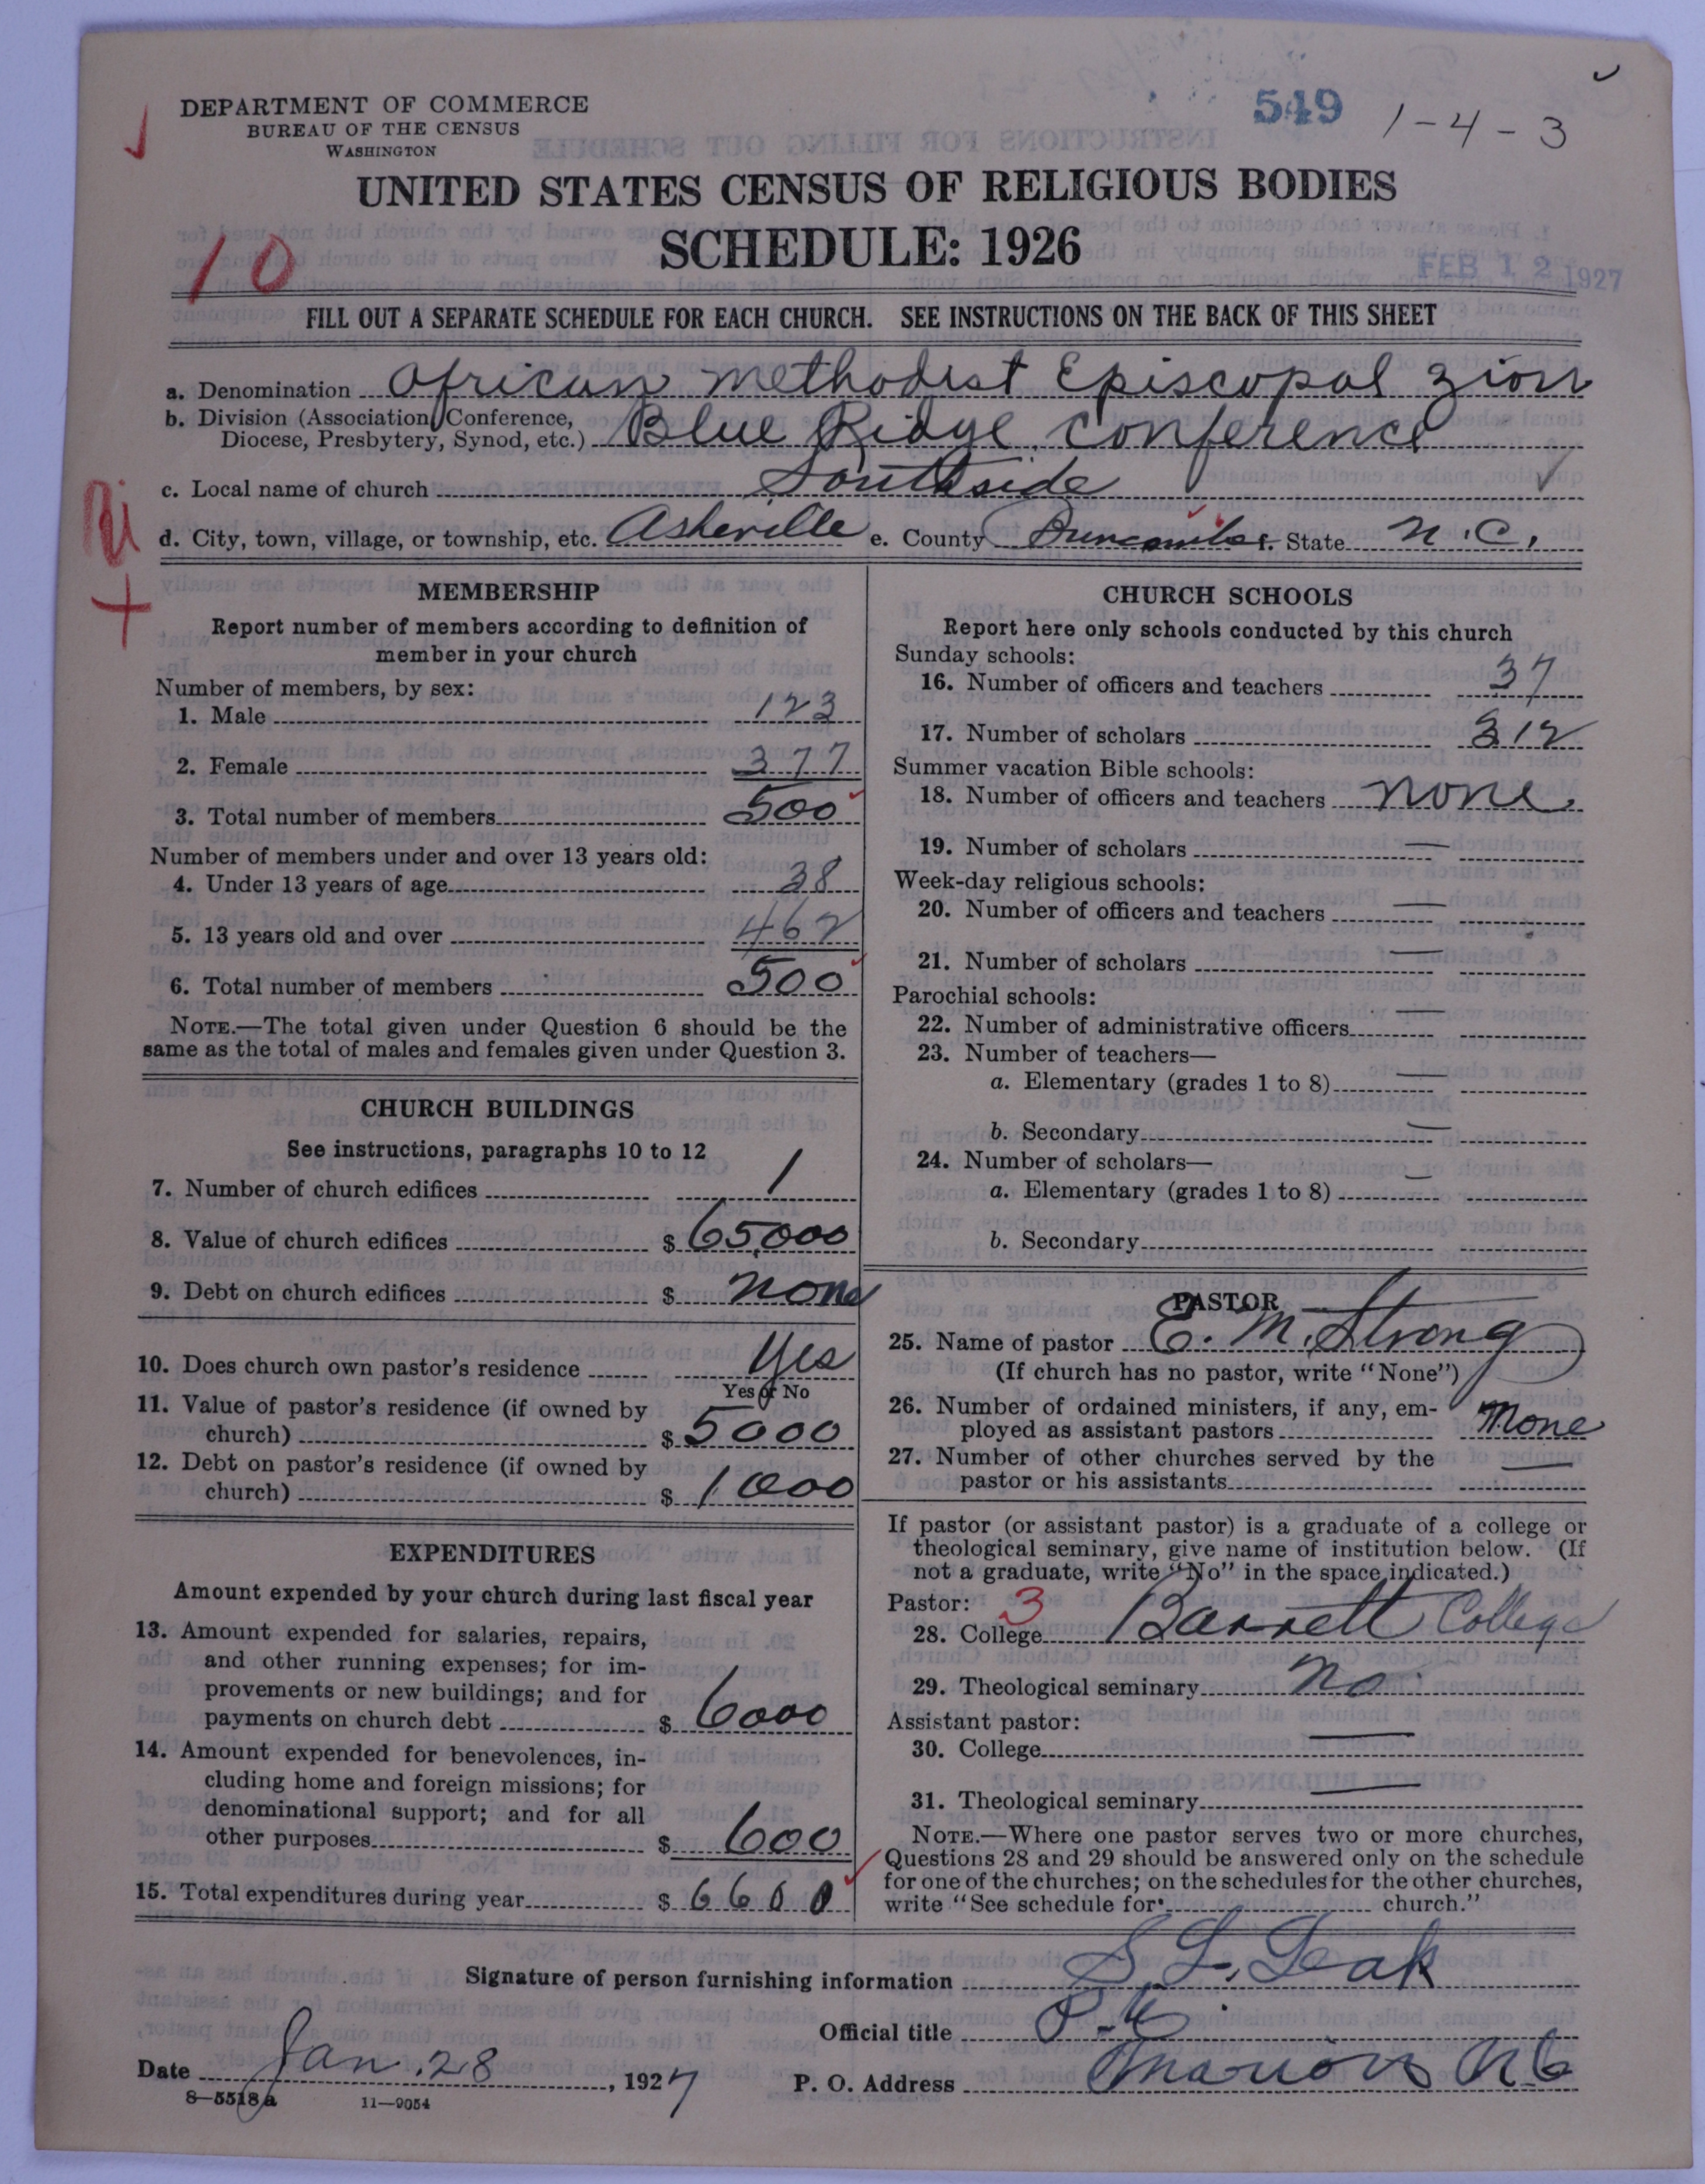 DEPARTMENT OF COMMERCE
BUREAU OF THE CENSUS
WASHINGTON
549
1-4-3
UNITED STATES CENSUS OF RELIGIOUS BODIES
SCHEDULE: 1926
10
FEB 12 1927
FILL OUT A SEPARATE SCHEDULE FOR EACH CHURCH. SEE INSTRUCTIONS ON THE BACK OF THIS SHEET
a. Denomination African Methodist Episcopal Zion
b. Division (Association, Conference,
Diocese, Presbytery, Synod, etc.) Blue Ridge Conference
c. Local name of church Southside
d. City, town, village, or township, etc. Asheville e. County Buncombe f. State N.C.
MEMBERSHIP
Report number of members according to definition of
member in your church
Number of members, by sex:
1. Male 123
2. Female 377
3. Total number of members 500
Number of members under and over 13 years old:
4. Under 13 years of age 38
5. 13 years old and over 462
6. Total number of members 500
NOTE.—The total given under Question 6 should be the
same as the total of males and females given under Question 3.
CHURCH BUILDINGS
See instructions, paragraphs 10 to 12
7. Number of church edifices 1
8. Value of church edifices $ 65,000
9. Debt on church edifices $ none
10. Does church own pastor's residence Yes
Yes or No
11. Value of pastor's residence (if owned by
church) $ 5000
12. Debt on pastor's residence (if owned by
church) $ 1000
EXPENDITURES
Amount expended by your church during last fiscal year
13. Amount expended for salaries, repairs,
and other running expenses; for im-
provements or new buildings; and for
payments on church debt $ 6000
14. Amount expended for benevolences, in-
cluding home and foreign missions; for
denominational support; and for all
other purposes $ 600
15. Total expenditures during year $ 6600
CHURCH SCHOOLS
Report here only schools conducted by this church
Sunday schools:
16. Number of officers and teachers 37
17. Number of scholars 312
Summer vacation Bible schools:
18. Number of officers and teachers none.
19. Number of scholars —
Week-day religious schools:
20. Number of officers and teachers —
21. Number of scholars —
Parochial schools:
22. Number of administrative officers —
23. Number of teachers—
a. Elementary (grades 1 to 8) —
b. Secondary —
24. Number of scholars—
a. Elementary (grades 1 to 8) —
b. Secondary
PASTOR
25. Name of pastor E. M. Strong
(If church has no pastor, write "None")
26. Number of ordained ministers, if any, em-
ployed as assistant pastors none
27. Number of other churches served by the
pastor or his assistants —
If pastor (or assistant pastor) is a graduate of a college or
theological seminary, give name of institution below. (If
not a graduate, write "No" in the space indicated.)
Pastor: 3
28. College Barrett College
29. Theological seminary No
Assistant pastor:
30. College —
31. Theological seminary —
NOTE.—Where one pastor serves two or more churches,
Questions 28 and 29 should be answered only on the schedule
for one of the churches; on the schedules for the other churches,
write "See schedule for church."
Signature of person furnishing information S. L. Leak
Official title P.E.
Date Jan. 28, 1927 P. O. Address Marion N C
8—5518a 11—9054